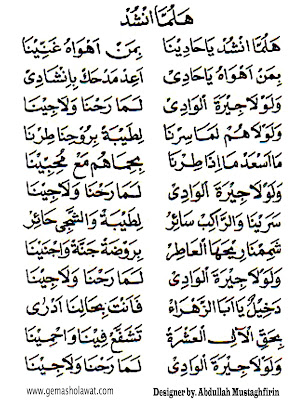 هَلُمَّا انْشُدْ
هَلُمَّا انْشُدْ يَاحَادِيْنَا بِمَنْ اَهْوَاهُ غَنِّيْنَا
بِمَنْ اَهْوَاهُ يَاحَادِيْ اَعِدْ مَدْحَكْ بِاِنْشَادِيْ
وَلَوْلَاجِيْرَةَ الْوَادِيْ لَمَا رَحْنَا وَلَاجِيْنَا
وَلَوْلَاهُمْ لَمَاسِرْنَا لِطَيْبَةْ بِرَوْحِنَا طِرْنَا
مَااَسْعَدْ مَااِذَا طِرْنَا بِحِمَاهُمْ مَعْ مُحِبِّيْنَا
وَلَوْلَاجِيْرَةَ الْوَادِيْ لَمَا رَحْنَا وَلَاجِيْنَا
سَرَيْنَا وَالرَّاكِبْ سَائِرْ لِطَيْبَةْ وَالشَّجِيْ حَائِرْ
شَمِمْنَا رِيْحَهَا الْعَاطِرْ بِرَوْضَةْ جَنَّةْ وَاجْتِيْنَا
وَلَوْلَاجِيْرَةَ الْوَادِيْ لَمَا رَحْنَا وَلَاجِيْنَا
دَخِيْلْ يَااَبَا الزَّهْرَاءْ فَاَنْتَ بِحَالِنَا اَدْرَى
بِحَقِّ الْآلِ الْعَشْرَةْ تَشَفَّعْ فِيْنَا وَاحْمِيْنَا
وَلَوْلَاجِيْرَةَ الْوَادِيْ لَمَا رَحْنَا وَلَاجِيْنَا
www.gemasholawat.com Designer by. Abdullah Mustaghfirin